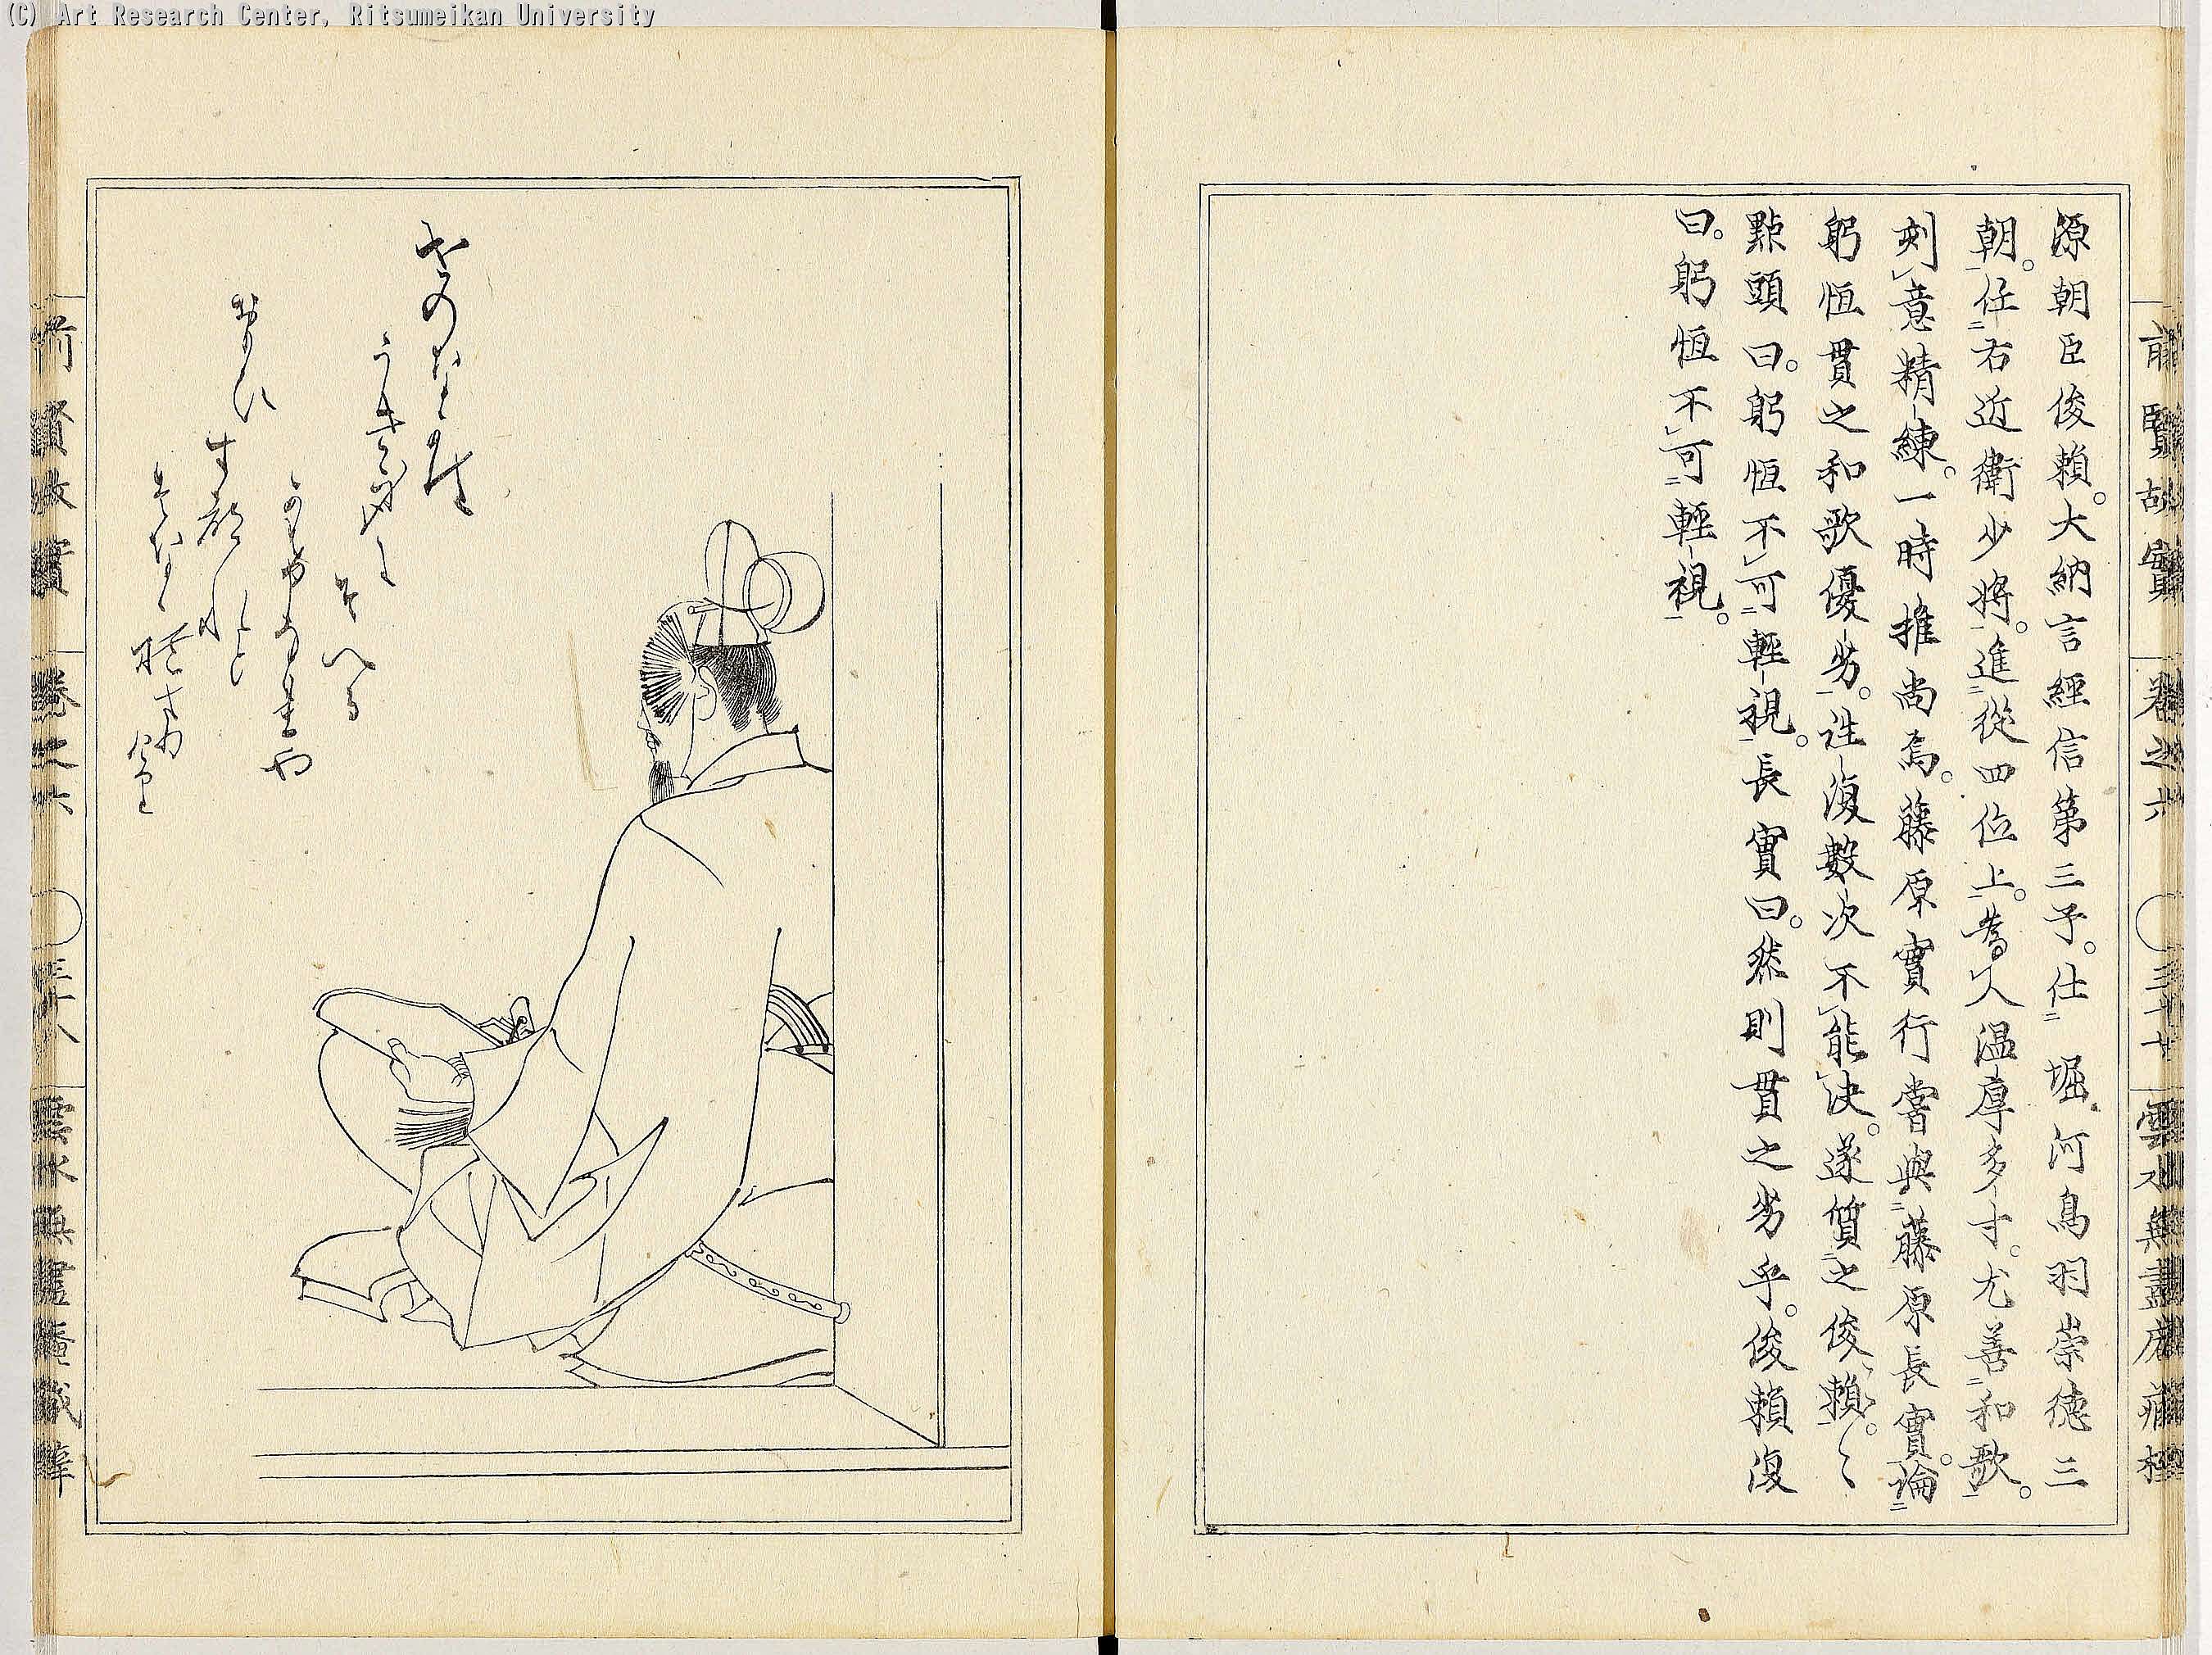 (C) Art Research Center, Ritsumeikan University
前賢故實 卷之六 ○三十七 雲水無盡庵藏梓
源朝臣俊頼。大納言經信第三子。仕堀河鳥羽崇德三
朝。任右近衛少將。進從四位上。為人温厚多才。尤善和歌。
刻意精練。一時推尚焉。藤原實行嘗與藤原長實論
躬恒貫之和歌優劣。往復數次不能決。遂質之俊頼。〻
點頭曰。躬恒不可輕視。長實曰。然則貫之劣乎。俊頼復
曰。躬恒不可輕視。
よのなかは
うき身に
そへる
かけなれや
おもひ
すつれと
はなれさりけり
前賢故實 卷之六 ○三十八 雲水無盡庵藏梓